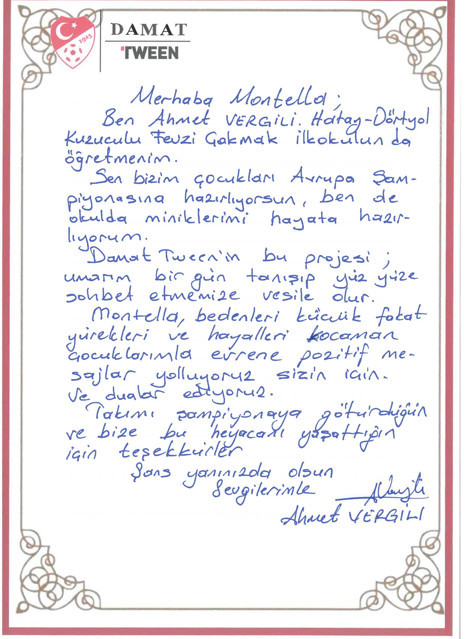 1923
DAMAT
TWEEN
Merhaba Montella;
Ben Ahmet VERGİLİ. Hatay-Dörtyol
Kuzuculu Fevzi Çakmak ilkokulunda
öğretmenim.
Sen bizim çocukları Avrupa Şam-
piyonasına hazırlıyorsun, ben de
okulda miniklerimi hayata hazır-
lıyorum.
Damat Tween'in bu projesi;
umarım bir gün tanışıp yüz yüze
sohbet etmemize vesile olur.
Montella, bedenleri küçük fakat
yürekleri ve hayalleri kocaman
çocuklarımla evrene pozitif me-
sajlar yolluyoruz sizin için.
ve dualar ediyoruz.
Takımı şampiyonaya götürdüğün
ve bize bu heyecanı yaşattığın
için teşekkürler
Şans yanınızda olsun
Sevgilerimle
Ahmet VERGİLİ